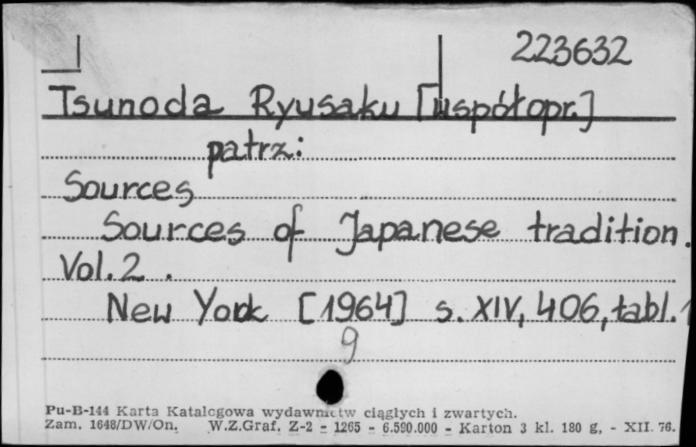 223632
Tsunoda Ryusaku [współopr.]
patrz:
Sources
Sources of Japanese tradition.
Vol. 2.
New York [1964] s. XIV, 406, tabl. 1
g
Pu-B-144 Karta Katalogowa wydawnictw ciągłych i zwartych.
Zam. 1648/DW/On. W.Z.Graf. Z-2 - 1265 - 6.590.000 - Karton 3 kl. 180 g, - XII. 76.